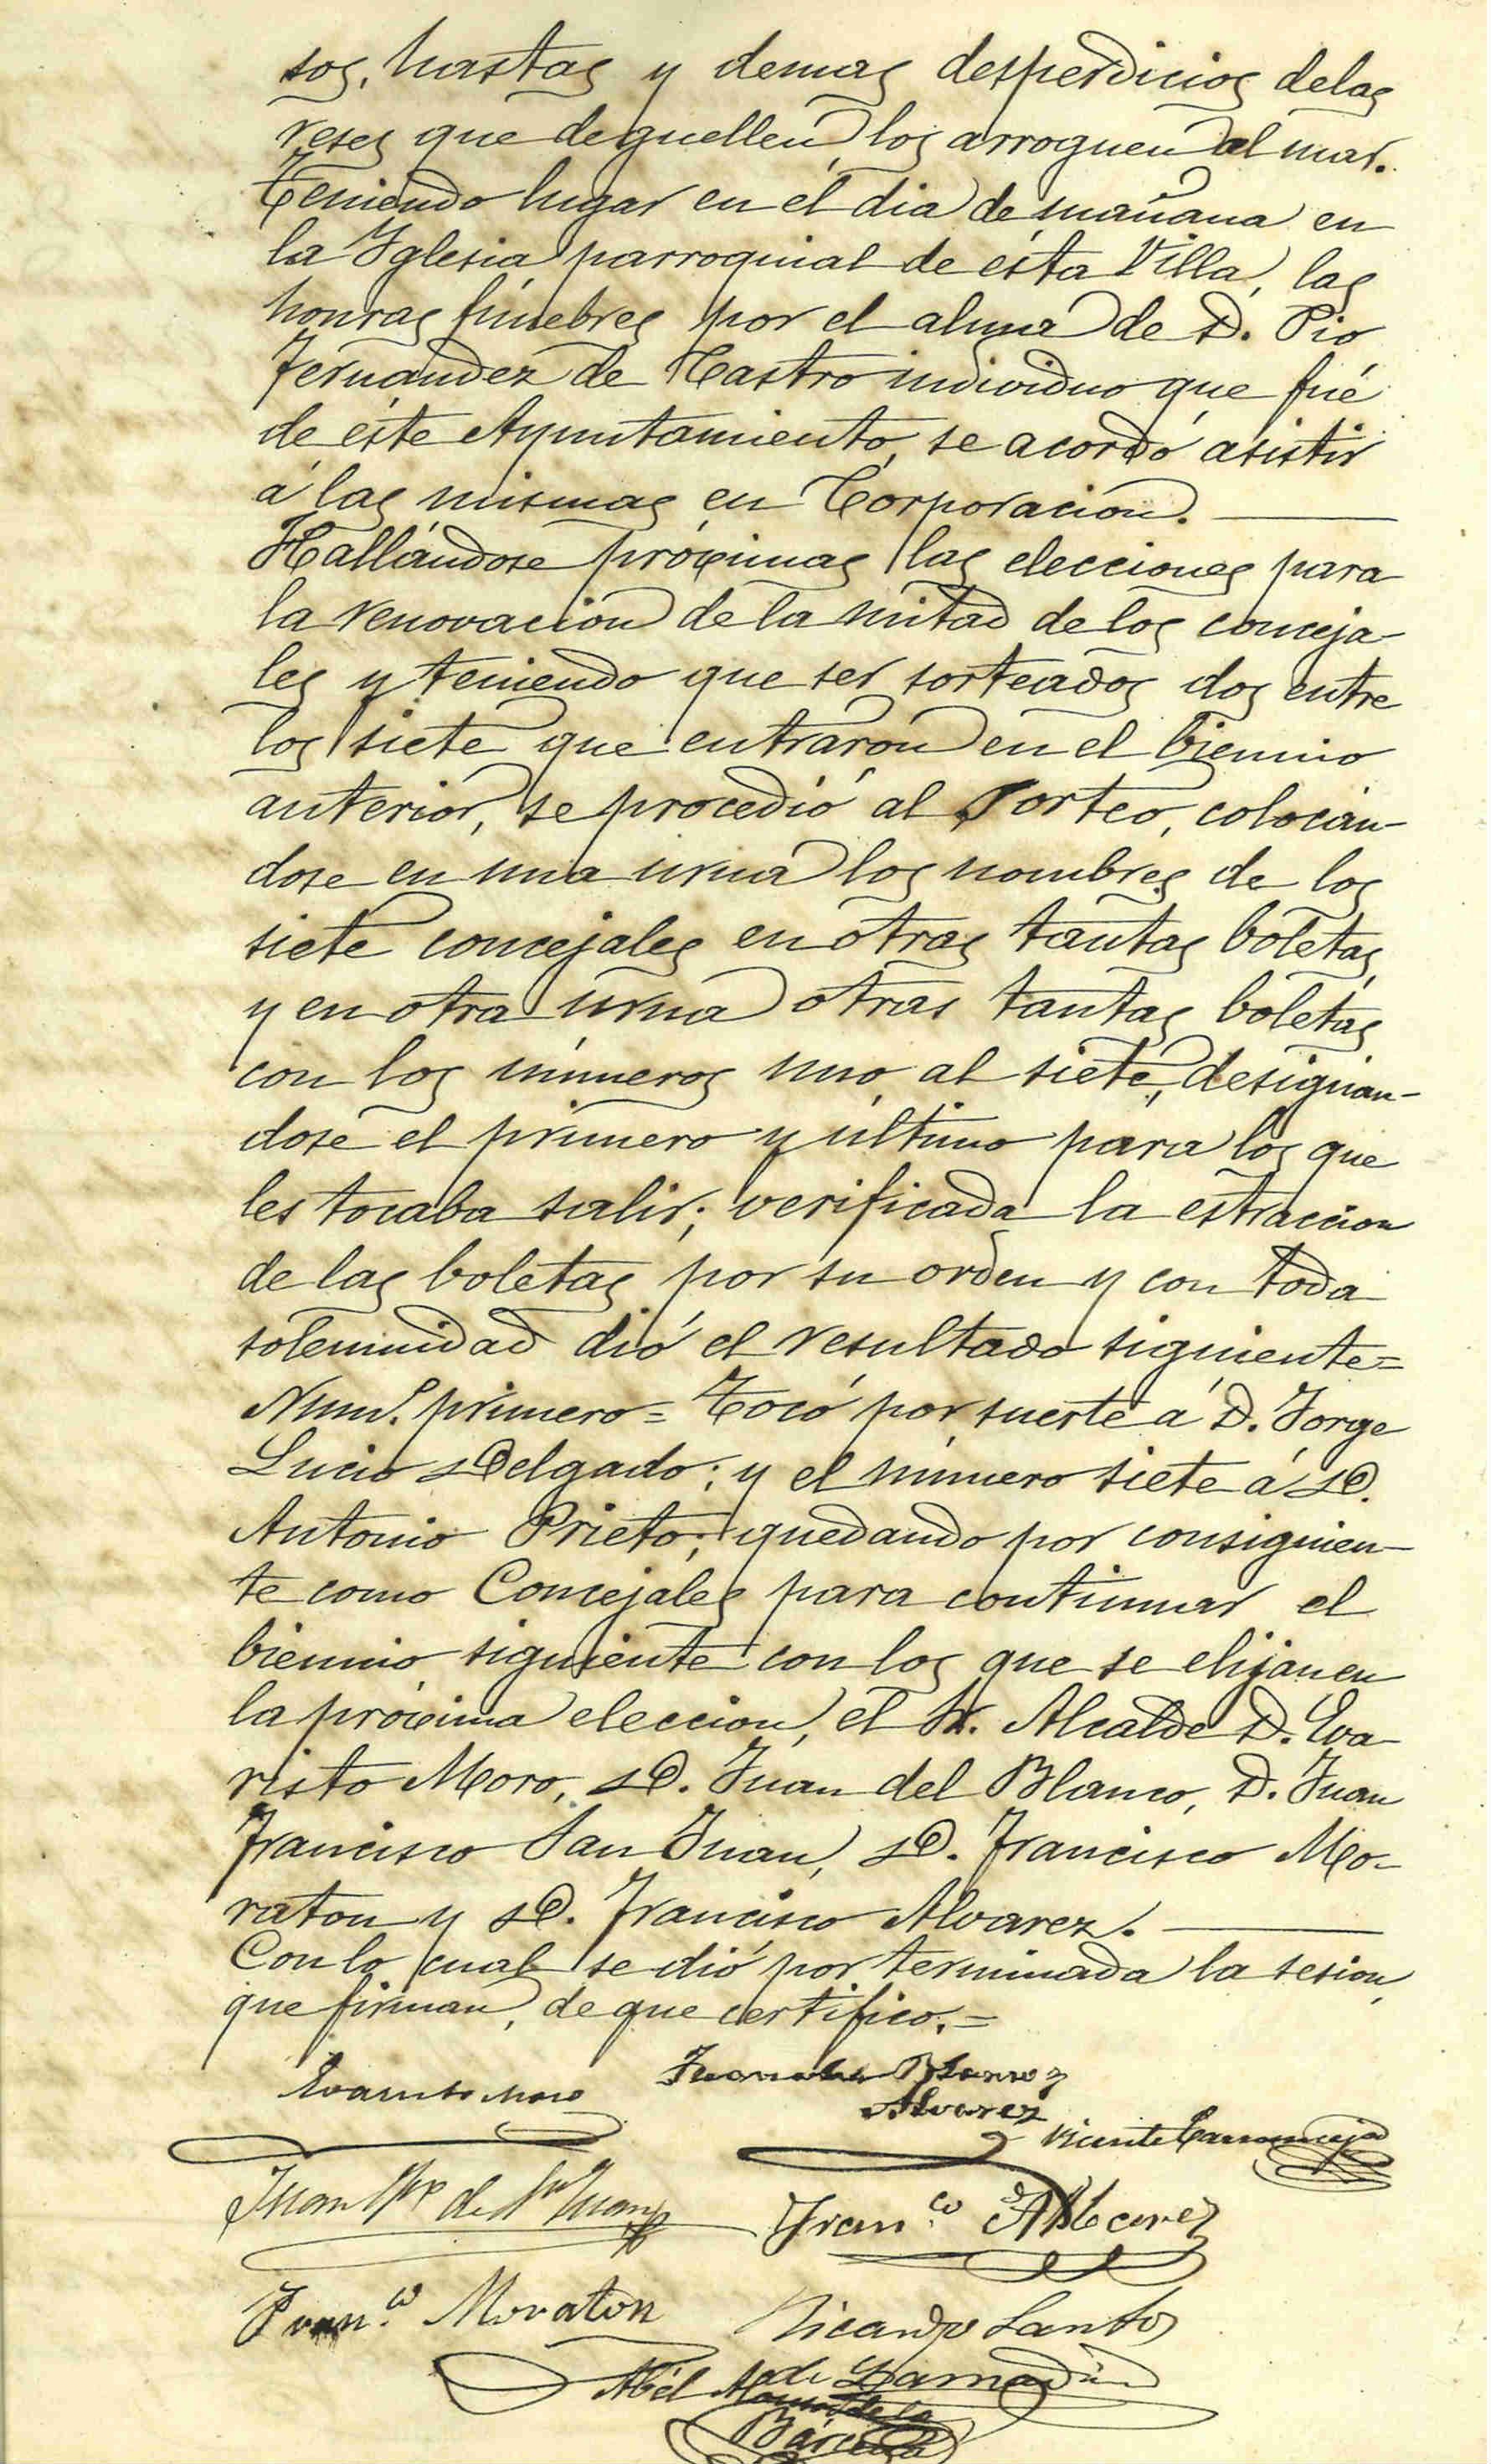 sos, hastas y demas desperdicios delas
reses que deguellen los arroguen al mar.
Teniendo lugar en el dia de mañana en
la Iglesia parroquial de ésta Villa, las
honras fúnebres por el alma de D. Pio
Fernandez de Castro individuo que fué
de éste Ayuntamiento, se acordó asistir
á las mismas en Corporacion.
Hallándose próximas las elecciones para
la renovacion de la mitad de los conceja-
les y teniendo que ser sorteados dos entre
los siete que entraron en el bienio
anterior, se procedió al Sorteo, colocán-
dose en una urna los nombres de los
siete concejales en otras tantas boletas,
y en otra urna otras tantas boletas
con los números uno al siete, designan-
dose el primero y último para los que
les tocaba salir; verificada la estraccion
de las boletas por su orden y con toda
solemnidad dió el resultado siguiente=
Numº. primero= Tocó por suerte á D. Jorge
Lucio Delgado; y el número siete á D.
Antonio Prieto; quedando por consiguien-
te como Concejales para continuar el
biennio siguiente con los que se elijan en
la próxima eleccion, el Sr. Alcalde D. Eva-
risto Moro, D. Juan del Blanco, D. Juan
Francisco San Juan, D. Francisco Mo-
raton y D. Francisco Alvarez.
Con lo cual se dió por terminada la sesion,
que firman, de que certifico.=
Evaristo Moro
Juan del Blanco y
Alvarez
Vicente
Juan Fco de Sn Juan
Franco. Alvarez
Franco. Moraton
Ricardo Santos
de Lamadrid
Abél Alonso de la
Bárcena